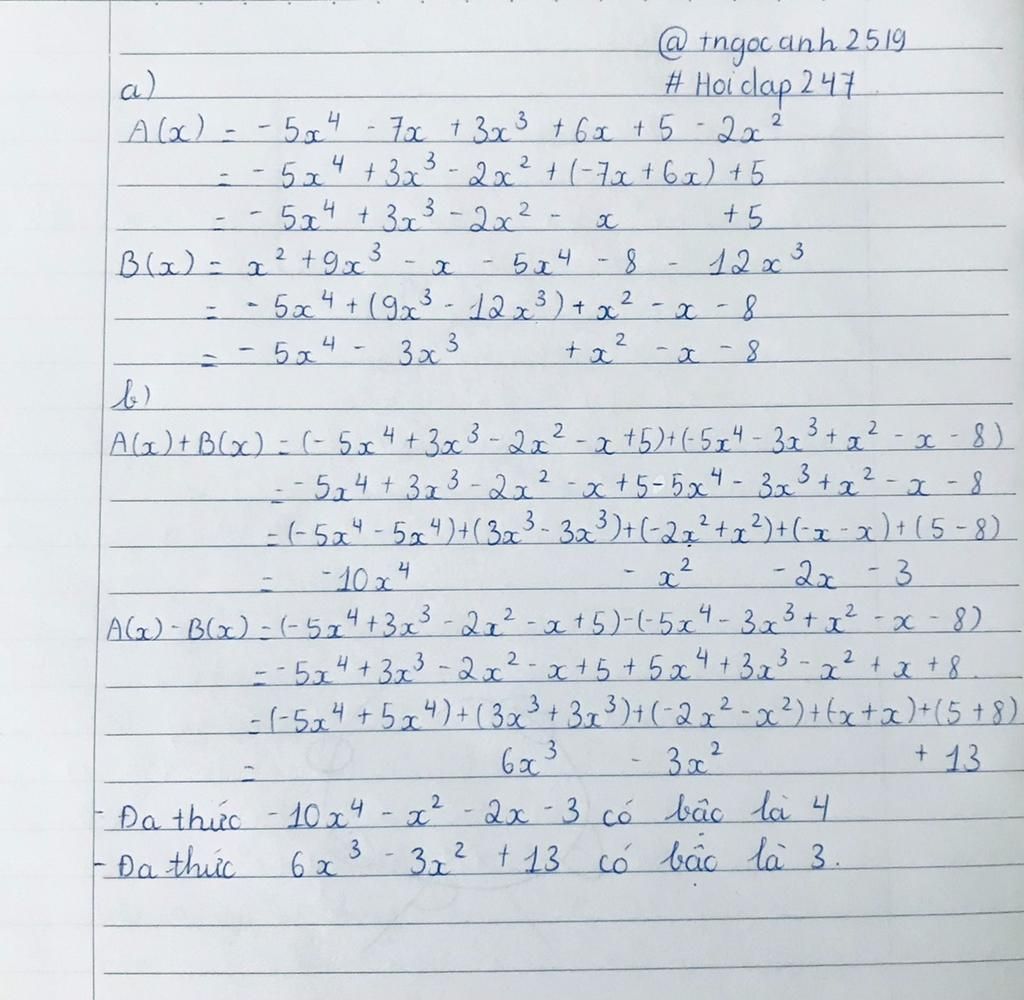 @ tngocanh2519
# Hoidap247
a)
A(x) = - 5x⁴ - 7x + 3x³ + 6x + 5 - 2x²
= - 5x⁴ + 3x³ - 2x² + (-7x + 6x) + 5
= - 5x⁴ + 3x³ - 2x² - x + 5
B(x) = x² + 9x³ - x - 5x⁴ - 8 - 12x³
= - 5x⁴ + (9x³ - 12x³) + x² - x - 8
= - 5x⁴ - 3x³ + x² - x - 8
b)
A(x) + B(x) = (- 5x⁴ + 3x³ - 2x² - x + 5) + (-5x⁴ - 3x³ + x² - x - 8)
= - 5x⁴ + 3x³ - 2x² - x + 5 - 5x⁴ - 3x³ + x² - x - 8
= (-5x⁴ - 5x⁴) + (3x³ - 3x³) + (-2x² + x²) + (-x - x) + (5 - 8)
= -10x⁴ - x² - 2x - 3
A(x) - B(x) = (-5x⁴ + 3x³ - 2x² - x + 5) - (-5x⁴ - 3x³ + x² - x - 8)
= - 5x⁴ + 3x³ - 2x² - x + 5 + 5x⁴ + 3x³ - x² + x + 8
= (-5x⁴ + 5x⁴) + (3x³ + 3x³) + (-2x² - x²) + (-x + x) + (5 + 8)
= 6x³ - 3x² + 13
- Đa thức -10x⁴ - x² - 2x - 3 có bậc là 4
- Đa thức 6x³ - 3x² + 13 có bậc là 3.